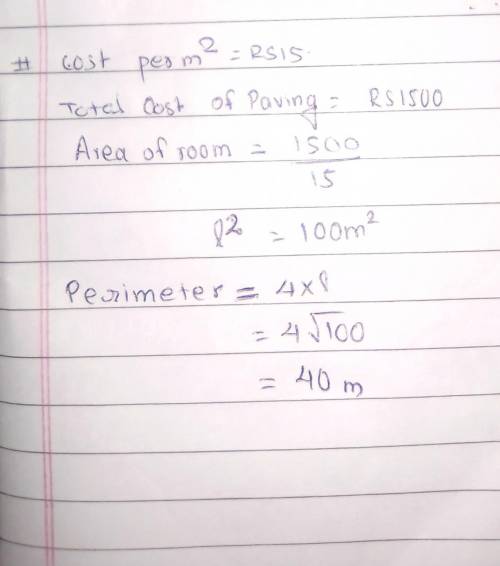 # Cost per m² = RS15.
Total Cost of Paving = RS1500
Area of room = 1500/15
l² = 100m²
Perimeter = 4×l
= 4√100
= 40 m